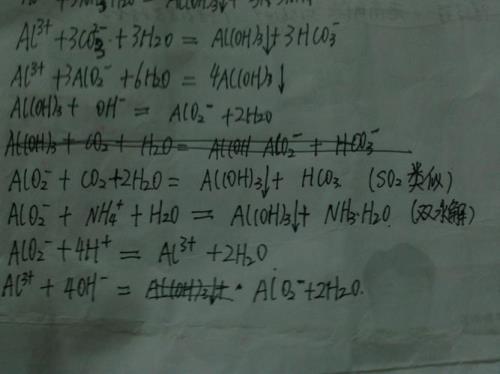 Al³⁺ + 3CO₃²⁻ + 3H₂O = Al(OH)₃↓ + 3HCO₃⁻
Al³⁺ + 3AlO₂⁻ + 6H₂O = 4Al(OH)₃↓
Al(OH)₃ + OH⁻ = AlO₂⁻ + 2H₂O
Al(OH)₃ + CO₂ + H₂O = Al(OH AlO₂⁻ + HCO₃⁻
AlO₂⁻ + CO₂ + 2H₂O = Al(OH)₃↓ + HCO₃ (SO₂类似)
AlO₂⁻ + NH₄⁺ + H₂O = Al(OH)₃↓ + NH₃·H₂O (双水解)
AlO₂⁻ + 4H⁺ = Al³⁺ + 2H₂O
Al³⁺ + 4OH⁻ = Al(OH)₃↓+ · AlO₂⁻ + 2H₂O.